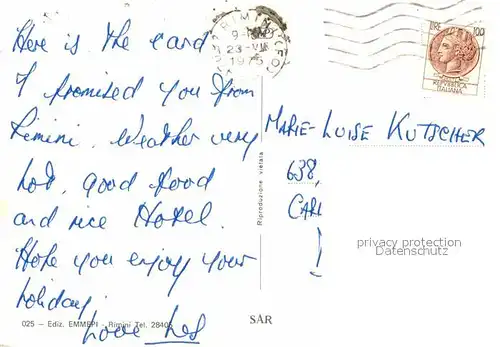 Here is the card
I promised you from
Rimini. Weather very
hot, good food
and nice Hotel.
Hope you enjoy your
holiday.
Love Les
025 — Ediz. EMMEPI - Rimini Tel. 28405
SAR
Riproduzione vietata
RIMINI
23
1975
LIRE 100
REPVBBLICA
ITALIANA
MARIE-LUISE KUTSCHER
638,
CARL
privacy protection
Datenschutz